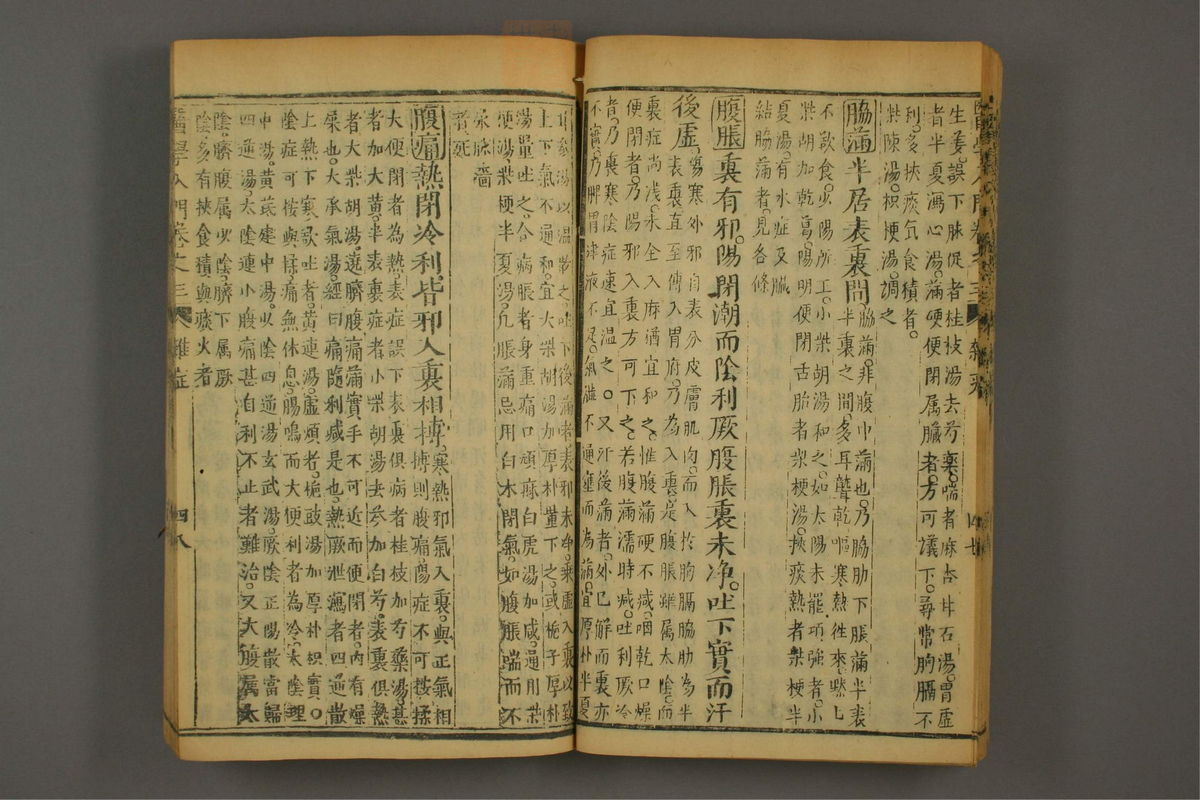 生姜誤下脉促者桂枝湯去芍藥喘者麻杏甘石湯胃虛
者半夏瀉心湯滿硬便閉属臟者方可議下尋常胸膈不
利多挾痰氣食積者
柴陳湯枳梗湯調之
脇滿半居表裏間
脇滿非腹中滿也乃脇肋下脹滿半表
半裏之間多耳聾乾嘔寒熱徃來嘿匕
不欲食少陽所工小柴胡湯和之如太陽未罷項強者小
柴胡加乾葛陽明便閉舌胎者柴梗湯挾痰熱者柴梗半
夏湯有水症又臟
結脇滿者見各條
腹脹裏有邪陽閉潮而陰利厥腹脹裏未净吐下實而汗
後虛
傷寒外邪自表分皮膚肌肉而入於胸膈脇肋為半
表裏直至傳入胃府乃為入裏是腹脹雖属太陰而
裏症尚淺未全入府猶宜和之惟腹滿硬不减咽乾口燥
便閉者乃陽邪入裏方可下之若腹滿濡時减吐利厥冷
者乃裏寒陰症速宜温之又汗後滿者外已解而裏亦
不實乃脾胃津液不足氣滯不通壅而為滿宜厚朴半夏
湯以温散之吐下後滿者表邪未净乘虛入裏以致
上下氣不通和宜大柴胡湯加厚朴薑下之或梔子厚朴
湯量吐之合病脹者身重痛口頑麻白虎湯加减通用柴
梗湯柴梗半夏湯凡脹滿忌用白木閉氣如腹脹喘而不
尿脉濇
者死
腹痛熱閉冷利皆邪入裏相摶
寒熱邪氣入裏與正氣相
摶則腹痛陽症不可按揉
大便閉者為熱表症誤下表裏俱病者桂枝加芍藥湯甚
者加大黄半表裏症者小柴胡湯去參加白芍表裏俱熱
者大柴胡湯遶臍腹痛滿實手不可近而便閉者內有燥
屎也大承氣湯經曰痛隨利减是也熱厥泄瀉者四逆散
上熱下寒欲吐者黄連湯虛煩者梔豉湯加厚朴枳實
陰症可按與揉痛無休息腸鳴而大便利者為冷太陰理
中湯黄芪建中湯少陰四逆湯玄武湯厥陰正陽散當歸
四逆湯太陰連小腹痛甚自利不止者難治又大腹属太
陰臍腹属少陰臍下属厥
陰多有挾食積與痰火者
醫學入門卷之三
雜症
四八